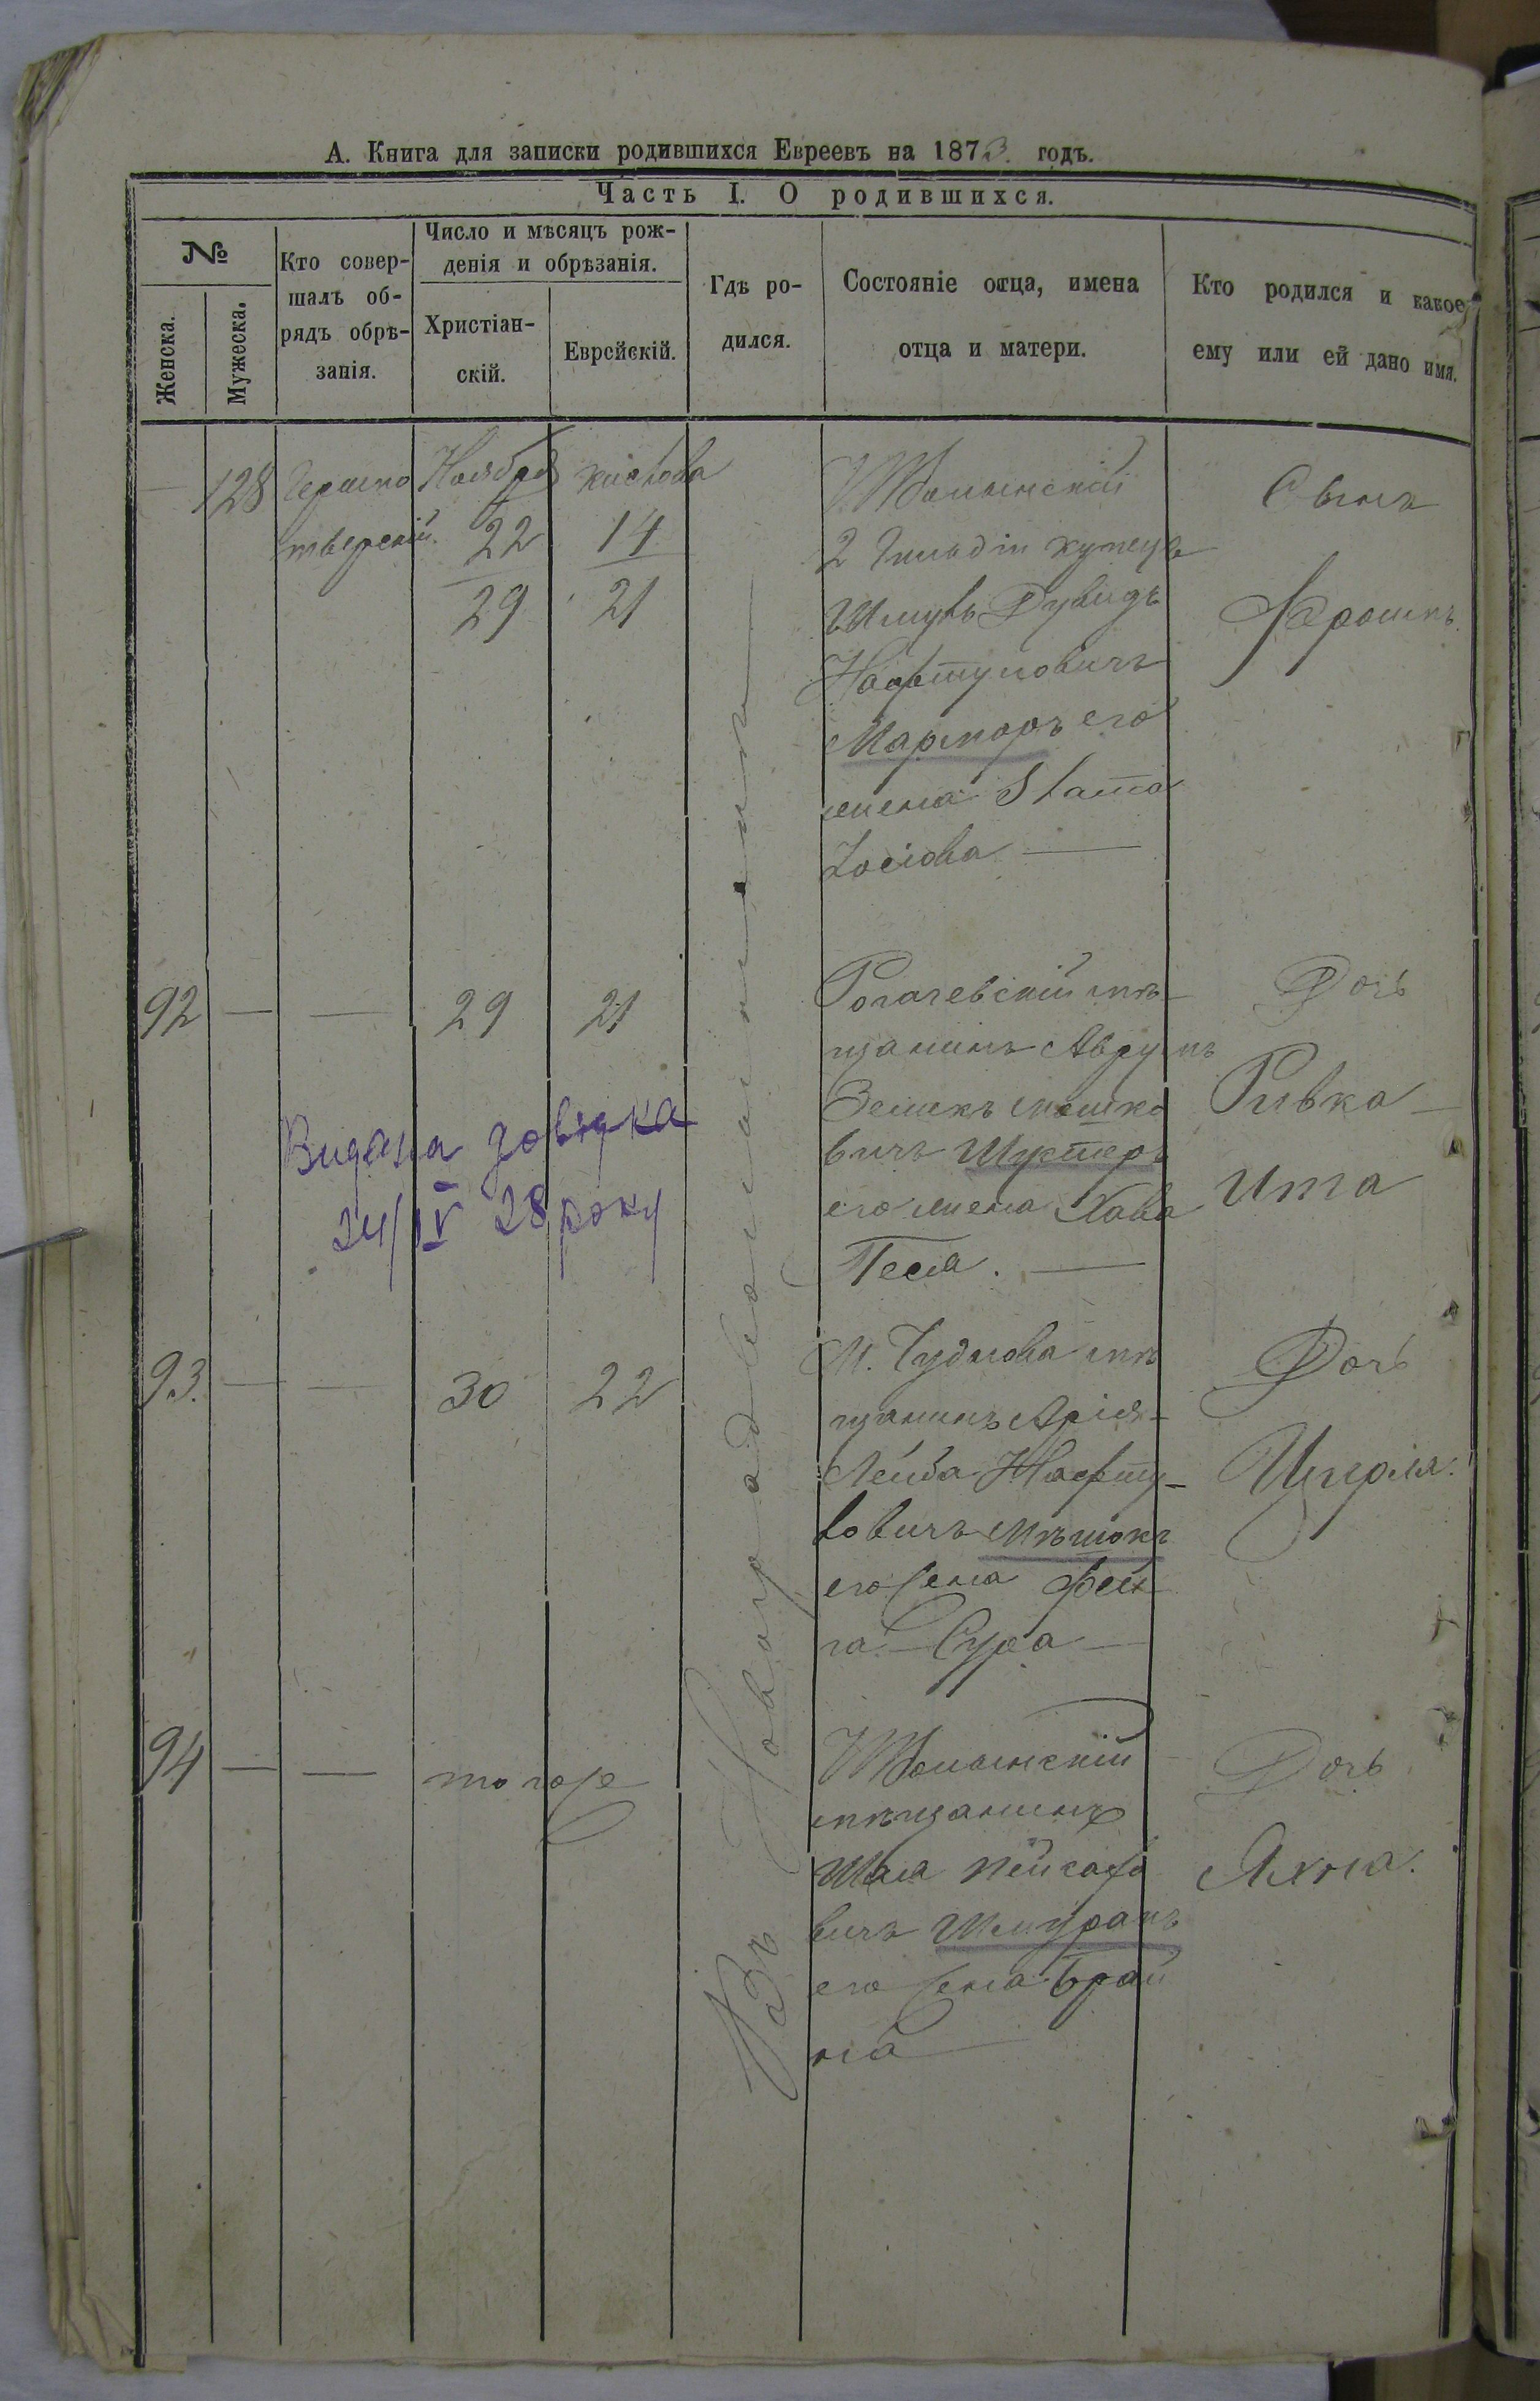 А. Книга для записки родившихся Евреевъ на 1873. годъ.
Часть I. О родившихся.
№
Женска.
Мужеска.
Кто совер-
шалъ об-
рядъ обрѣ-
занія.
Число и мѣсяцъ рож-
денія и обрѣзанія.
Христіан-
скій.
Еврейскій.
Гдѣ ро-
дился.
Состояніе отца, имена
отца и матери.
Кто родился и какое
ему или ей дано имя.
— 128 Гершко Ноября кислова
тверскій. 22 14
29 21
2 Гильдіи купецъ
Шмуль Дувидъ
Нафтуловичъ
Марморъ его
жена Злата
Іосіова —
Сынъ
92 — — 29 21
Рогачевскій мѣ-
щанинъ Аврумъ
Зеликъ Мошко
вичъ Шустеръ
его жена Хава
Песя. —
Дочь
Ривка —
Ита
Видана довідка
24/IV 28 року
93. — — 30 22
М. Чуднова мѣ
щанинъ Арія-
Лейба Нафту-
ловичъ Мѣшокъ
его жена Фей
га - Сура —
Дочь
94 — — тогоже
мѣщанинъ
Шая Пейсахо
вичъ
его жена Брай
на —
Дочь
Яхна.
Въ Новоградволынскѣ